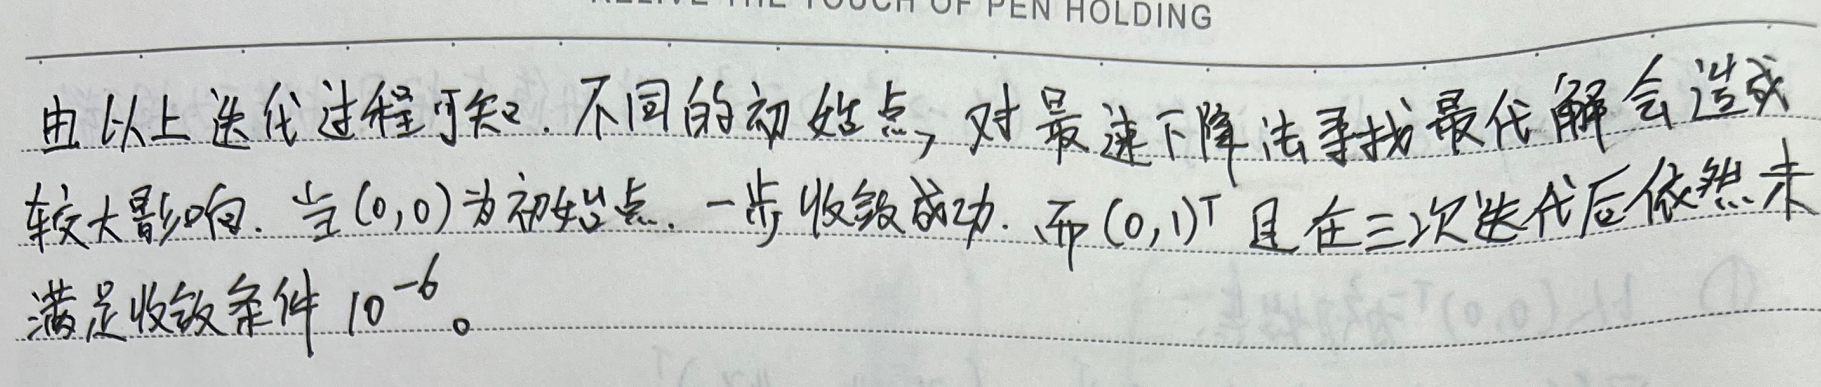 RELIVE THE TOUCH OF PEN HOLDING
由以上迭代过程可知.不同的初始点,对最速下降法寻找最代解会造成
较大影响.当(0,0)为初始点.一步收敛成功.而(0,1)ᵀ且在三次迭代后依然未
满足收敛条件10⁻⁶。